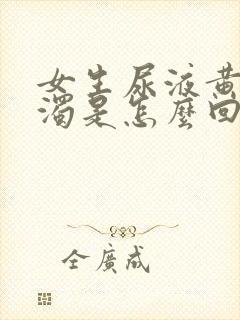 女生尿液黄
濁是怎麼回
全廣成